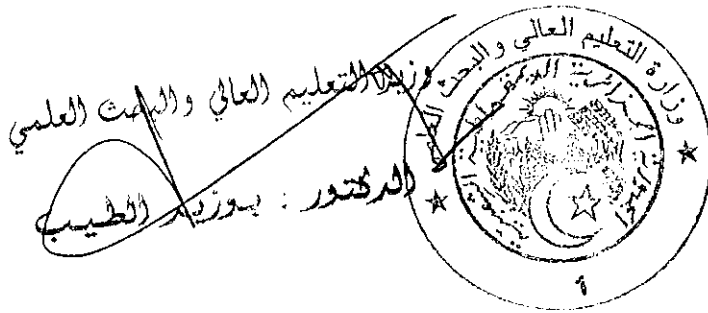 وزير التعليم العالي والبحث العلمي
الدكتور : بوزيد الطيب
وزارة التعليم العالي والبحث العلمي
الجمهورية الجزائرية الديمقراطية الشعبية